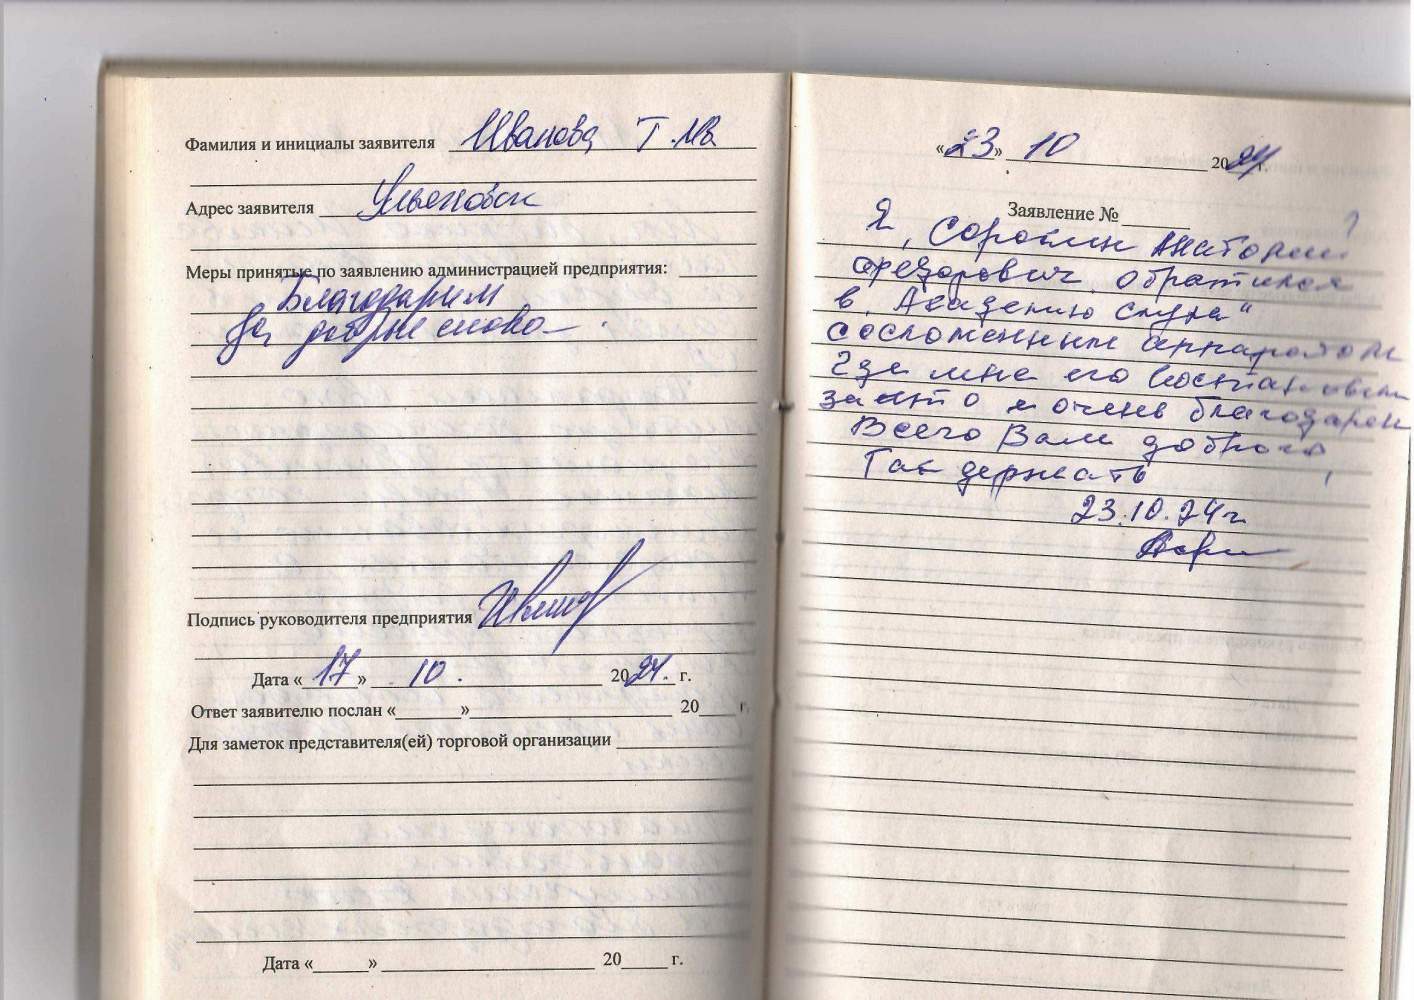 Фамилия и инициалы заявителя Иванова Т.
Адрес заявителя Ульяновск
Меры принятые по заявлению администрацией предприятия:
Благодарим
За добрые слова
Подпись руководителя предприятия
Дата «17» 10. 2024. г.
Ответ заявителю послан «    »     20    г.
Для заметок представителя(ей) торговой организации
Дата «    »     20    г.
«23» 10 2024 г.
Заявление №
Я, Анатолий
Федорович обратился
в "Академию слуха"
сосломенным аппаратом
где мне его
за што и очень благодарен
Всего Вам доброго,
Так держать
23.10.24г